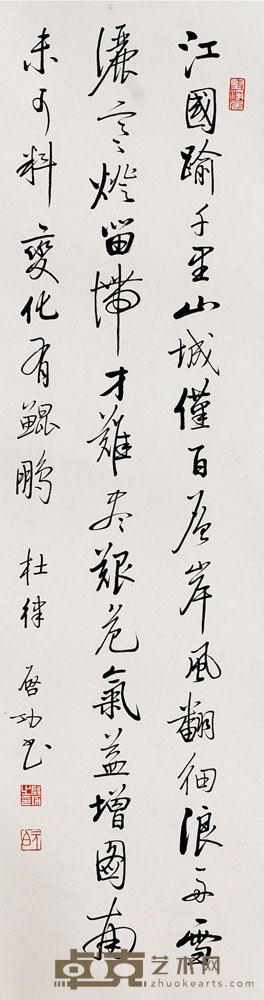 江國踰千里山城僅百層岸風翻細浪舟雪
灑寒燈留滯才難盡艱危氣益增圖南
未可料變化有鯤鵬 杜律 啓功書
卓克艺术网
zhuokearts.com